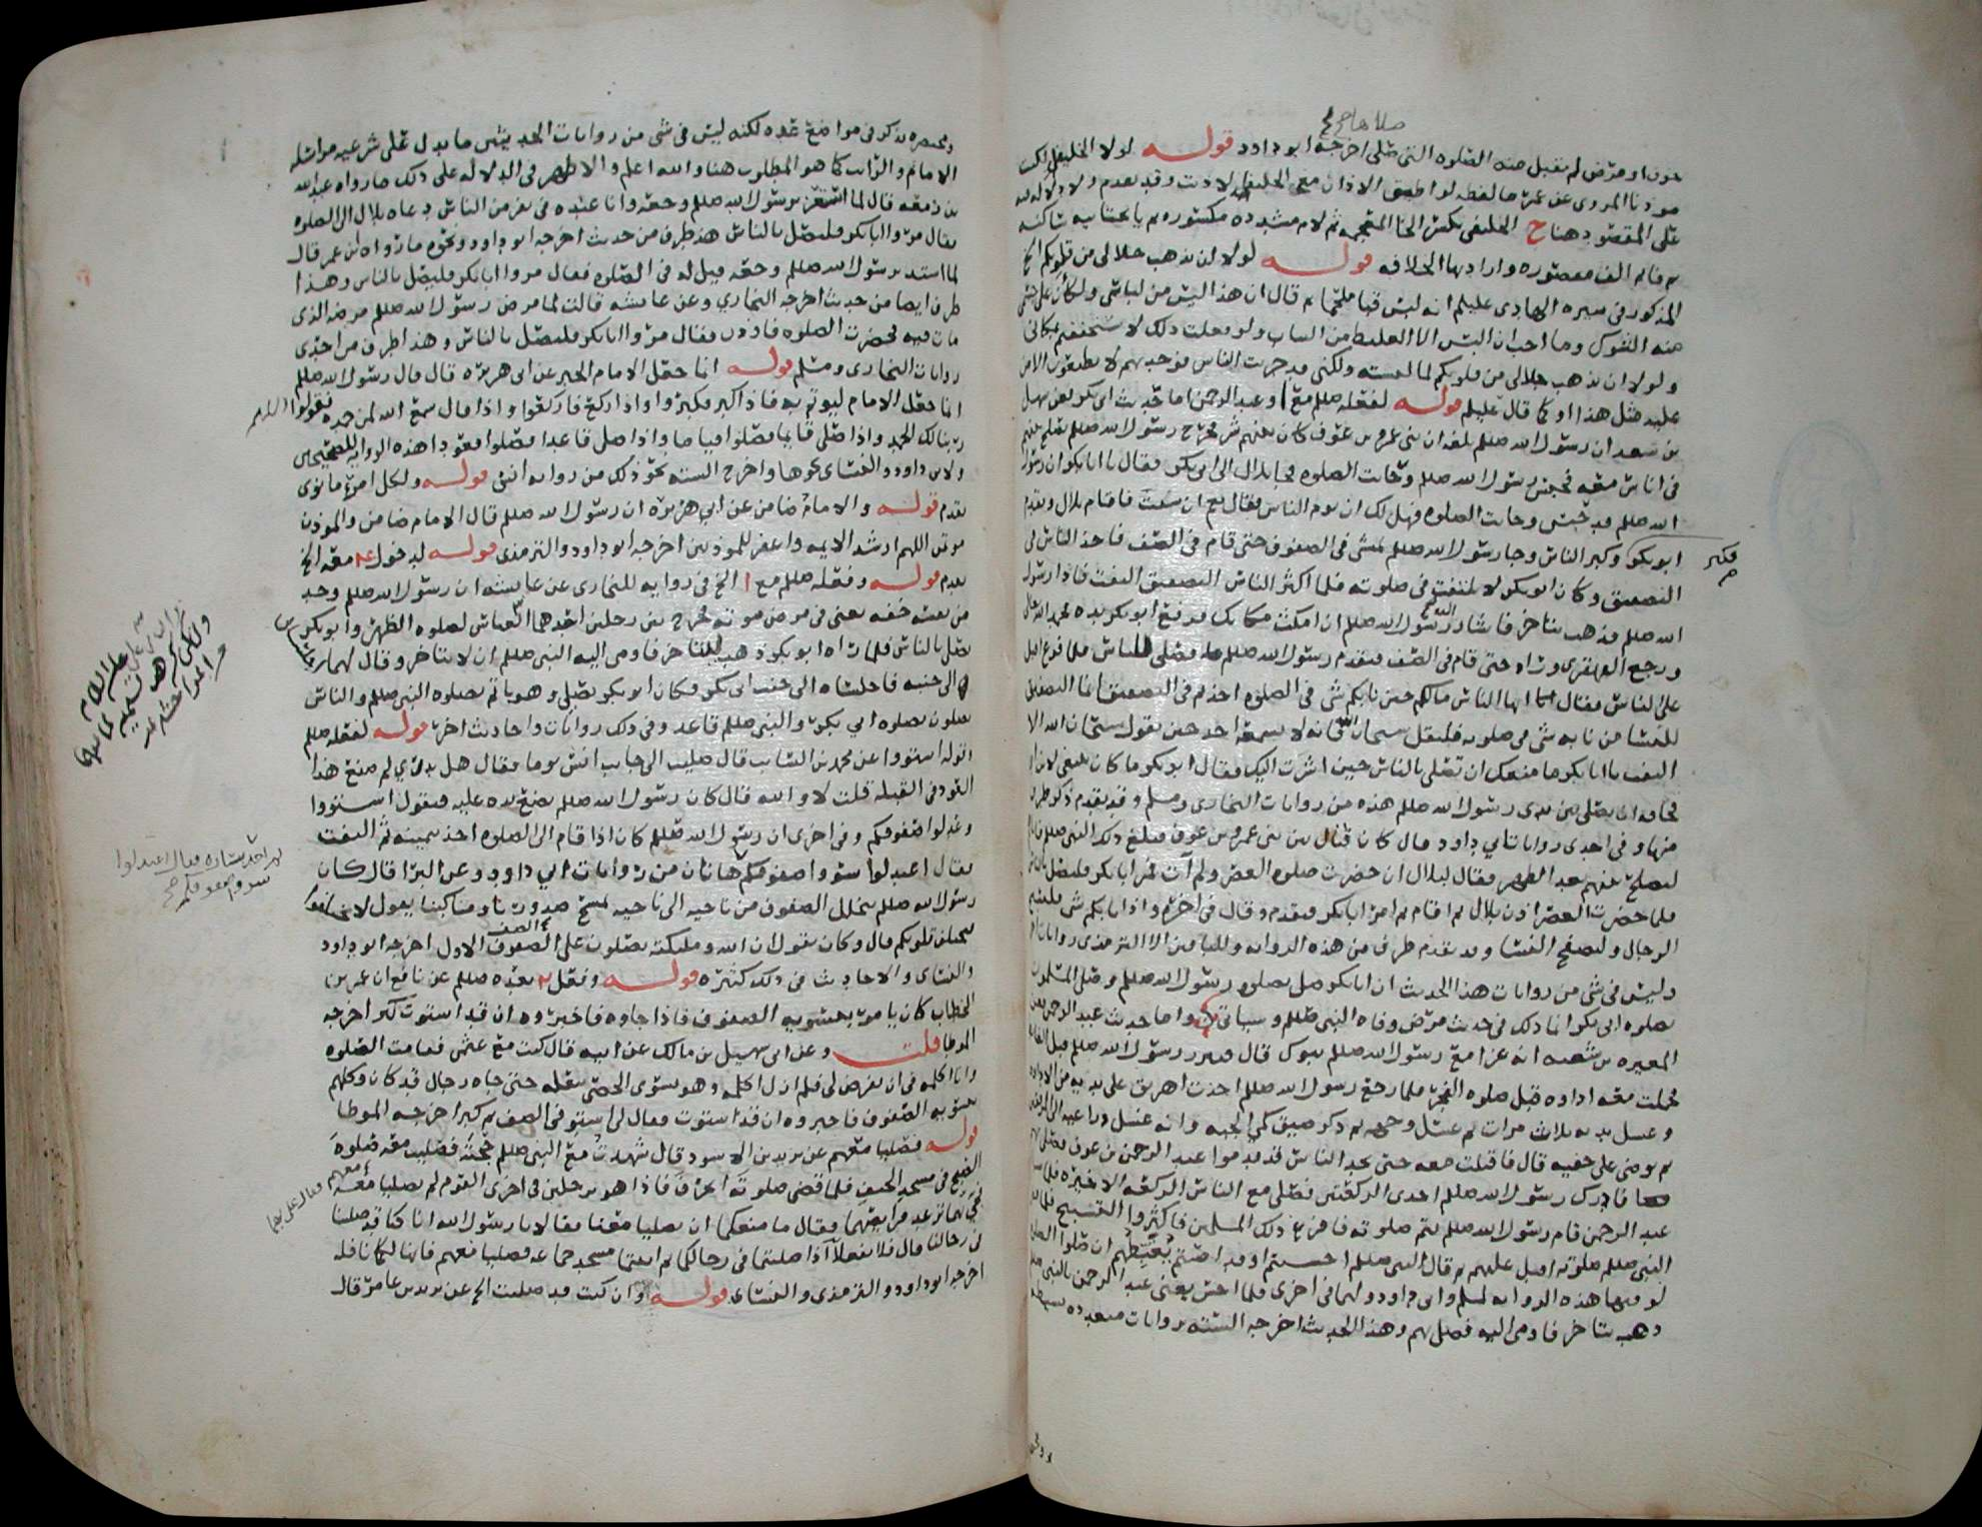 صلاها صح
خوف او مرض لم تقبل منه الصلوه التي صلى اخرجه ابو داود قوله لولا الخليفى لكنت
موذنا المروى عن عمر ما لفظه لو اطيق الاذان مع الخليفى لاذنت وقد تقدم ولا دلاله فيه
على المقصود هنا ح الخليفى بكسر الخا المعجمه ثم لام مشدده مكسوره ثم يا تحتانيه ساكنه
ثم فا ثم الف مقصوره واراد بها الخلافه قوله لولا ان يذهب جلالى من قلوبكم الخ
المذكور في سيره الهادى عليلم انه لبس قبا ملحما ثم قال ان هذا ليس من لباسى
منه النفوس وما احب ان البس الا الغليظ من الثياب ولو فعلت ذلك لاستخففتم بمكانى
ولولا ان يذهب جلالى من قلوبكم لما لبسته ولكنى قد جربت الناس فوجدتهم لا يطيعون الا من
عليه مثل هذا او كما قال عليلم قوله لفعله صللم مع ا وعبد الرحمن اما حديث ابى بكر فعن سهل
بن سعد ان رسول الله صللم بلغه ان بنى عمرو بن عوف كان بينهم شر فخرج رسول الله صللم يصلح بينهم
في اناس معه فحبس رسول الله صللم وحانت الصلوه فجا بلال الى ابى بكر فقال يا ابا بكر ان رسول
الله صللم قد حبس وحانت الصلوه فهل لك ان توم الناس فقال نعم ان شئت فاقام بلال وتقدم
ابو بكر وكبر الناس وجا رسول الله صللم يمشى في الصفوف حتى قام في الصف فاخذ الناس في
التصفيق وكان ابو بكر لا يلتفت في صلوته فلما اكثر الناس التصفيق التفت فاذا رسول
الله صللم فذهب يتاخر فاشار اليه رسول الله صللم ان امكث مكانك فرفع ابو بكر يده فحمد الله تعالى
ورجع القهقرى وراه حتى قام في الصف فتقدم رسول الله صللم فصلى للناس فلما فرغ اقبل
على الناس فقال ايها الناس مالكم حين نابكم شى في الصلوه اخذتم في التصفيق انما التصفيق
للنسا من نابه شى في صلوته فليقل سبحان الله فانه لا يسمعه احد حين يقول سبحان الله الا
التفت يا ابا بكر ما منعك ان تصلى بالناس حين اشرت اليك فقال ابو بكر ما كان ينبغى لابن ابى
قحافه ان يصلى بين يدى رسول الله صللم هذه من روايات البخارى ومسلم وقد تقدم ذكر طرف
منها وفي احدى روايات ابى داود قال كان قتال بين بنى عمرو بن عوف فبلغ ذلك النبى صللم فاتاهم
ليصلح بينهم بعد الظهر فقال لبلال ان حضرت صلوه العصر ولم آت فمر ابا بكر فليصل بالناس
فلما حضرت العصر اذن بلال ثم اقام ثم امر ابا بكر فتقدم وقال في اخره واذا نابكم شى فليسبح
الرجال وليصفح النسا وقد تقدم طرف من هذه الروايه وللباقين الا الترمذى روايات اخر
وليس في شى من روايات هذا الحديث ان ابا بكر صلى بصلوه رسول الله صللم وصلى المسلمون
بصلوه ابى بكر انما ذلك في حديث مرض وفاه النبى صللم وسياتى واما حديث عبد الرحمن فعن
المغيره بن شعبه انه غزا مع رسول الله صللم تبوك قال فتبرز رسول الله صللم قبل الغايط
فحملت معه اداوه قبل صلوه الفجر فلما رجع رسول الله صللم اخذت اهريق على يديه من الاداوه
وغسل يديه ثلاث مرات ثم غسل وجهه ثم ذكر ضيق كمى الجبه وانه غسل ذراعيه الى المرفقين
ثم توضى على خفيه قال فاقبلت معه حتى نجد الناس قد قدموا عبد الرحمن بن عوف فصلى بهم
فادرك رسول الله صللم احدى الركعتين فصلى مع الناس الركعه الاخيره فلما سلم
عبد الرحمن قام رسول الله صللم يتم صلوته فافزع ذلك المسلمين فاكثروا التسبيح فلما قضى
النبى صللم صلوته اقبل عليهم ثم قال النبى صللم احسنتم او قد اصبتم يُغَبِّطهم ان صلوا الصلوه
لوقتها هذه الروايه لمسلم وابى داود ولهما في اخرى فلما احس يعنى عبد الرحمن بالنبى صللم
ذهب يتاخر فاومى اليه فصلى بهم وهذا الحديث اخرجه السته بروايات متعدده
فكبر
ومختصره تذكر في مواضع عده لكنه ليس في شى من روايات الحديثين ما يدل على شرعيه مراسله
الامام والراتب كما هو المطلوب هنا والله اعلم والاظهر في الدلاله على ذلك ما رواه عبد الله
بن زمعه قال لما استعز برسول الله صللم وجعه وانا عنده في نفر من الناس دعاه بلال الى الصلوه
فقال مروا ابا بكر فليصل بالناس هذ طرف من حديث اخرجه ابو داود ونحوه ما رواه ابن عمر قال
لما اشتد برسول الله صللم وجعه قيل له في الصلوه فقال مروا ابا بكر فليصل بالناس وهذا
طرف ايضا من حديث اخرجه البخاري وعن عايشه قالت لما مرض رسول الله صللم مرضه الذى
مات فيه فحضرت الصلوه فاوذن فقال مروا ابا بكر فليصل بالناس وهذا طرف من احدى
روايات البخارى ومسلم قوله انما جعل الامام الخبر عن ابى هريره قال قال رسول الله صللم
انما جعل الامام ليوتم به فاذا كبر فكبروا واذا ركع فاركعوا واذا قال سمع الله لمن حمده فقولوا اللهم
ربنا لك الحمد واذا صلى قايما فصلوا قياما واذا صلى قاعدا فصلوا قعودا هذه الروايه للصحيحين
ولابى داود والنسائ نحوها واخرج السته نحو ذلك من روايه انس قوله ولكل امرئ ما نوى
تقدم قوله والامام ضامن عن ابي هريره ان رسول الله صللم قال الامام ضامن والموذن
موتمن اللهم ارشد الايمه واغفر للموذنين اخرجه ابو داود والترمذى قوله لدخول عه معه الخ
تقدم قوله وفعله صللم مع ا الخ في روايه للبخارى عن عايشه ان رسول الله صللم وجد
من نفسه خفه يعنى في مرض موته فخرج بين رجلين احدهما العباس لصلوه الظهر وابو بكر
يصلى بالناس فلما راه ابو بكر ذهب ليتاخر فاومى اليه النبى صللم ان لا يتاخر وقال لهما اجلسانى
الى جنبه فاجلساه الى جنب ابى بكر فكان ابو بكر يصلى وهو ياتم بصلوه النبى صللم والناس
يصلون بصلوه ابي بكر والنبى صللم قاعد وفي ذلك روايات واحاديث اخر قوله لفعله صللم
قوله استووا عن محمد بن السائب قال صليت الى جانب انس يوما فقال هل تدري لم صنع هذا
العود في القبله قلت لا والله قال كان رسول الله صللم يضع يده عليه فيقول استووا
وعدلوا صفوفكم وفي اخرى ان رسول الله صللم كان اذا قام الى الصلوه اخذ بيمينه ثم التفت
فقال اعتدلوا سووا صفوفكم هاتان من روايات ابي داود وعن البرا قال كان
رسول الله صللم يتخلل الصفوف من ناحيه الى ناحيه يمسح صدورنا ومناكبنا يقول لا تختلفوا
فتختلف قلوبكم قال وكان يقول ان الله وملئكته يصلون على الصفوف الاول اخرجه ابو داود
والنسائ والاحاديث في ذلك كثيره قوله وفعل بعده صللم عن نافع ان عمر بن
الخطاب كان يامر بتسويه الصفوف فاذا جاوه فاخبروه ان قد استوت كبر اخرجه
الموطا قلت وعن ابى سهيل بن مالك عن ابيه قال كنت مع عثمن فقامت الصلوه
وانا اكلمه في ان يفرض لى فلم ازل اكلمه وهو يسوى الحصى بنعله حتى جاه رجال قد كان وكلهم
بتسويه الصفوف فاخبروه ان قد استوت فقال لى استو في الصف ثم كبر اخرجه الموطا
قوله فصليا معهم عن يزيد بن الاسود قال شهدت مع النبى صللم حجته فصليت معه صلوة
الصبح في مسجد الخيف فلما قضى صلوته انحرف فاذا هو برجلين في اخرى القوم لم يصليا معه
فجئ بهما ترعد فرايصهما فقال ما منعكما ان تصليا معنا فقالا يا رسول الله انا كنا قد صلينا
في رحالنا قال فلا تفعلا اذا صليتما في رحالكما ثم اتيتما مسجد جماعه فصليا معهم فانها لكما نافله
اخرجه ابو داود والترمذى والنسائ قوله وان كنت قد صليت الخ عن يزيد بن عامر قال
ثم اخذ بيساره فقال اعتدلوا
سووا صفوفكم صح
فقال على بهما